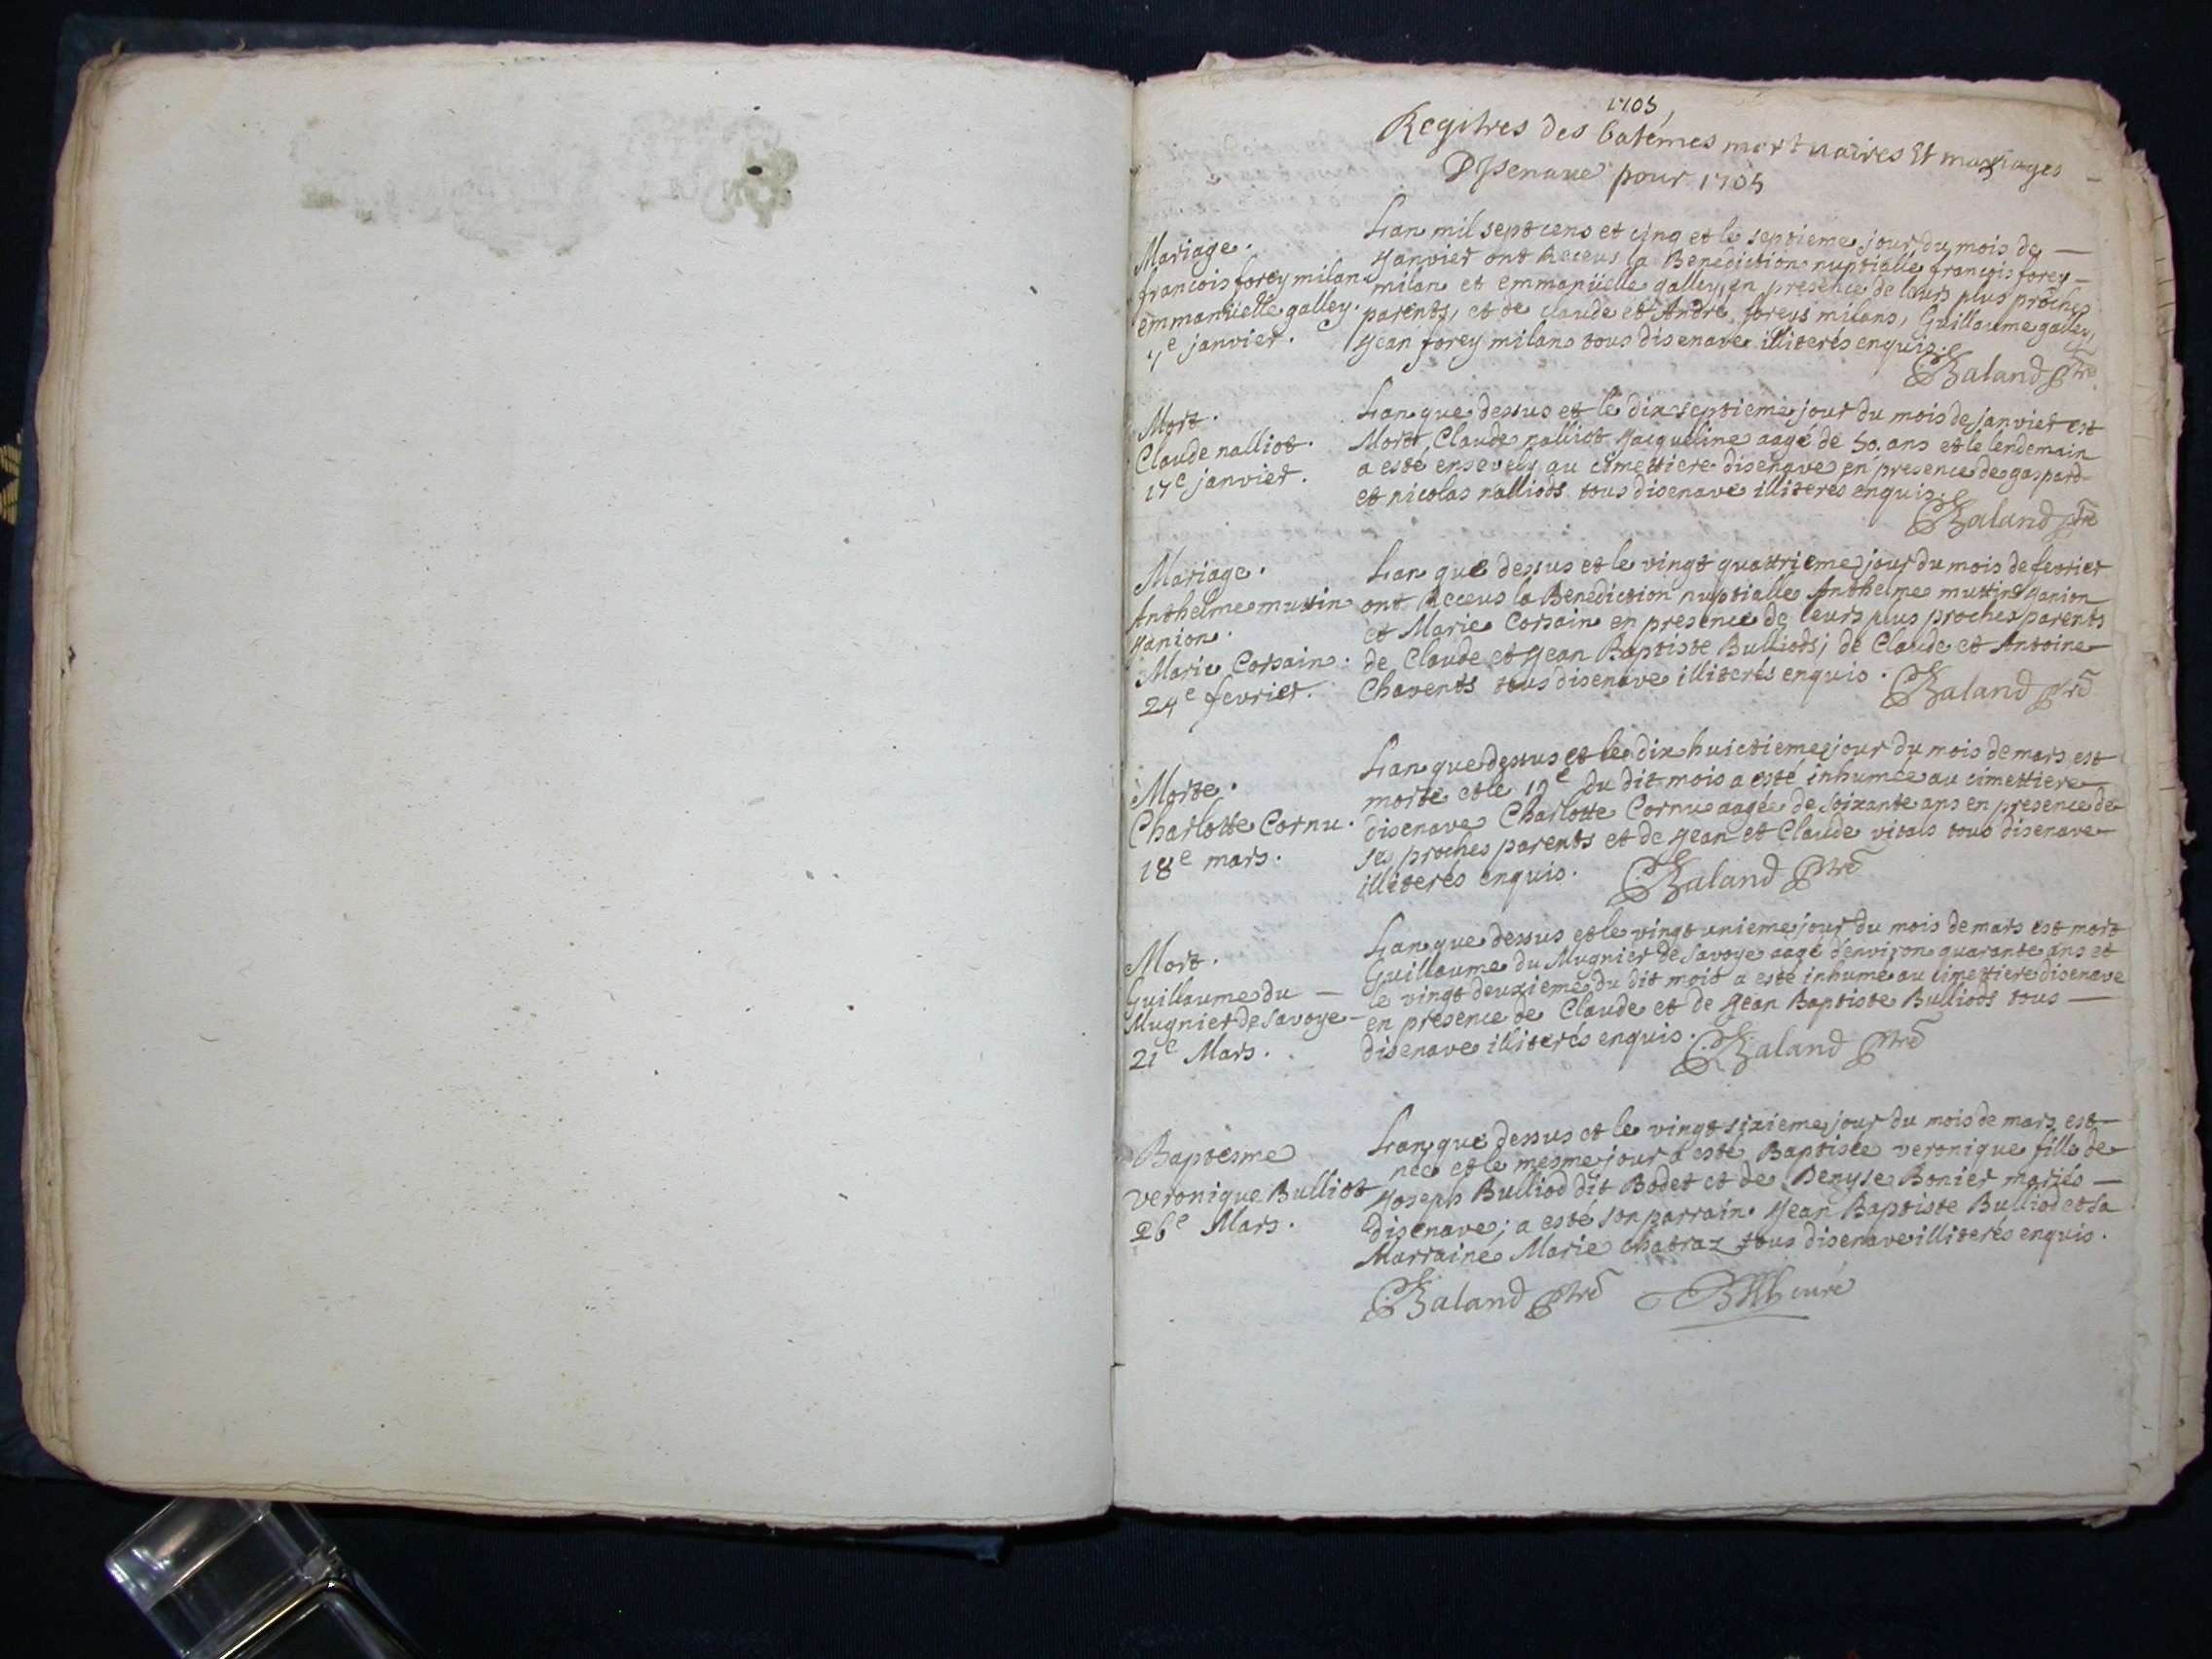 1705,
Regitres des batêmes mortuaires Et mariages
Disenave pour 1705
Mariage.
francois forey milan
emmanüelle galley.
7e janvier.
Lan mil sept cens et cinq et le septieme jour du mois de
Janvier ont Receus la Benediction nuptialle francois forey
milan et emmanüelle galley, en presence de leurs plus proches
parents, et de claude et André foreys milans, Guillaume galley,
Jean forey milan tous disenave illiterés enquis.
CBaland ptre
Mort.
Claude nalliot.
17e janvier.
Lan que dessus et le dix septieme jour du mois de janvier est
Mort Claude nalliot Jacqueline aagé de 50. ans et le lendemain
a esté ensevely au cimettiere disenave en presence de gaspard
et nicolas nalliods tous disenave illiteres enquis.
CBaland ptre
Mariage.
Anthelme muttin
Janion.
Marie Corsain.
24e fevrier.
Lan que dessus et le vingt quattrieme jour du mois de fevrier
ont Receus la Benediction nuptialle Anthelme muttin Janion
et Marie Corsain en presence de leurs plus proches parents
de Claude et Jean Baptiste Bulliods; de Claude et Antoine
Chavents tous disenave illiterés enquis.
CBaland ptre
Morte.
Charlotte Cornu.
18e mars.
Lan que dessus et le dix huictieme jour du mois de mars est
morte et le 19e du dit mois a esté inhumée au cimettiere
disenave Charlotte Cornu aagée de soixante ans en presence de
ses proches parents et de Jean et Claude vitals tous disenave
illiterés enquis. CBaland ptre
Mort.
Guillaume du
Mugnier de Savoye
21e Mars.
Lan que dessus et le vingt unieme jour du mois de mars est mort
Guillaume du Mugnier de Savoye aagé d'environ quarante ans et
le vingt deuxieme du dit mois a esté inhumé au cimettiere disenave
en presence de Claude et de Jean Baptiste Bulliods tous
disenave illiterés enquis. CBaland ptre
Baptesme
veronique Bulliot
26e Mars.
Lan que dessus et le vingt sixieme jour du mois de mars est
née et le mesme jour a esté Baptisée veronique fille de
Joseph Bulliod dit Bodet et de Denyse Bonier mariés
disenave; a esté son parrain Jean Baptiste Bulliod et sa
Marraine Marie chatraz tous disenave illiterés enquis.
CBaland ptre curé